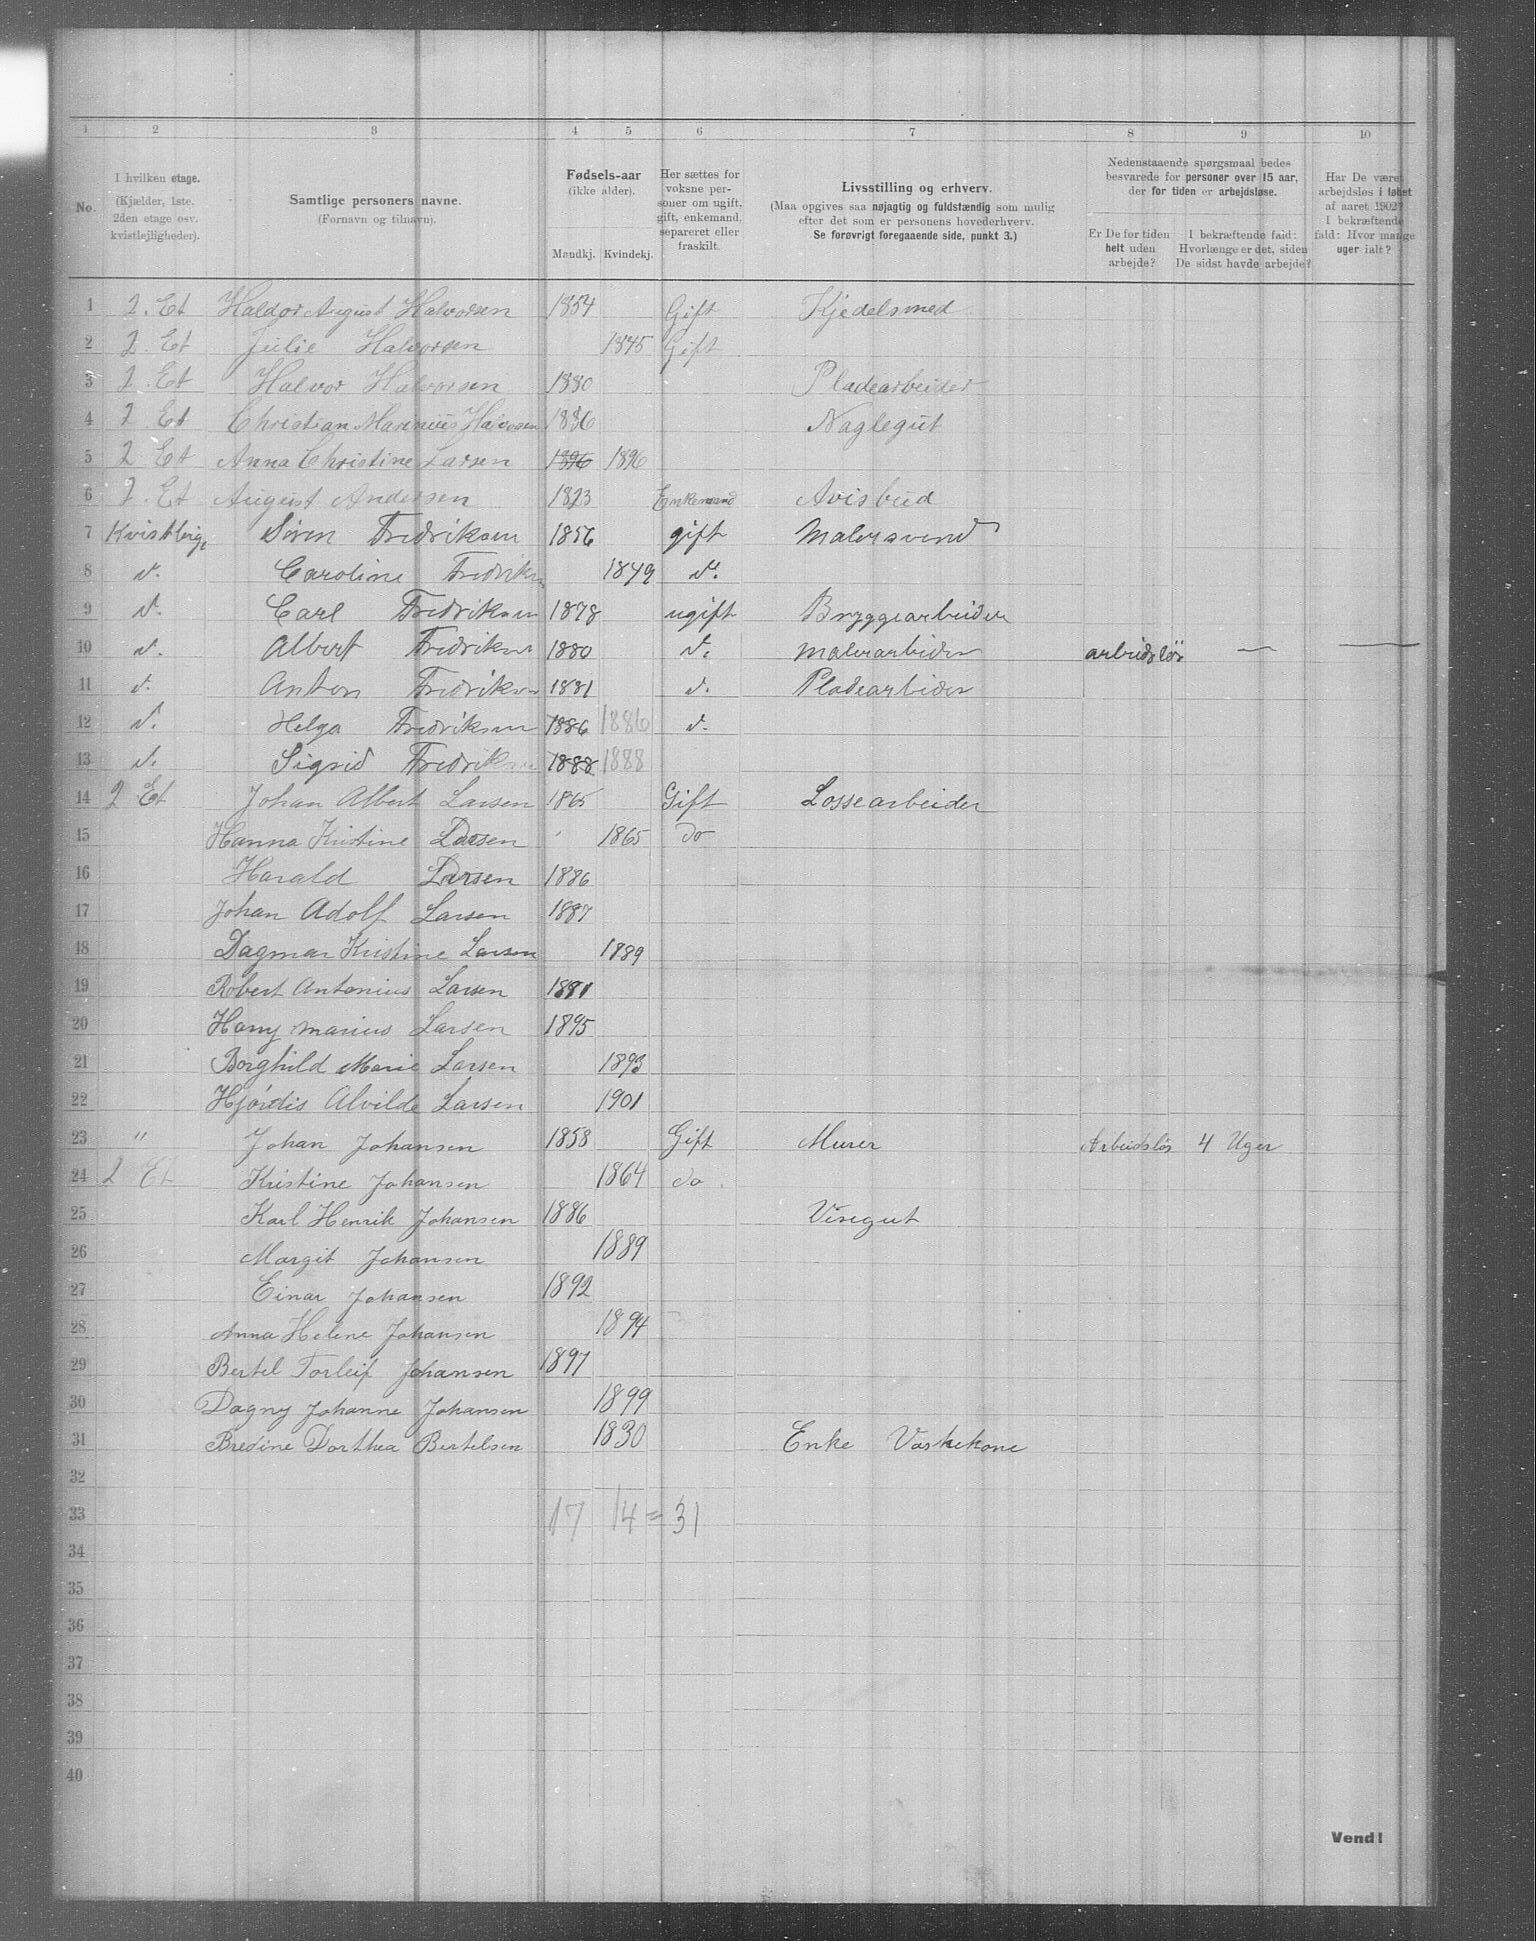 1 2 3 4 5 6 7 8 9 10
No. I hvilken etage. (Kjælder, 1ste, 2den etage osv. kvistlejligheder). Samtlige personers navne. (Fornavn og tilnavn). Fødsels-aar (ikke alder). Mandkj. Kvindekj. Her sættes for voksne personer om ugift, gift, enkemand, separeret eller fraskilt. Livsstilling og erhverv. (Maa opgives saa nøjagtig og fuldstændig som mulig efter det som er personens hovederhverv. Se forøvrigt foregaaende side, punkt 3.) Nedenstaaende spørgsmaal bedes besvarede for personer over 15 aar, der for tiden er arbejdsløse. Er De for tiden helt uden arbejde? I bekræftende fald: Hvorlænge er det, siden De sidst havde arbejde? Har De været arbejdsløs i løbet af aaret 1902? I bekræftende fald: Hvor mange uger ialt?
1 2. Et Haldor August Halvorsen 1854 Gift Kjedelsmed
2 2 Et Julie Halvorsen 1845 Gift
3 2. Et Halvor Halvorsen 1880 Pladearbeider
4 2 Et Christian Marinius Halvorsen 1886 Naglegut
5 2 Et Anna Christine Larsen 1896 1896
6 2. Et August Andersen 1823 Enkemand Avisbud
7 Søren Fredriksen 1856 gift Malersvend
8 d. Caroline Fredriksen 1849 d.
9 d. Carl Fredriksen 1878 ugift Bryggearbeider
10 d. Albert Fredriksen 1880 d. Malerarbeider arbeidsløs — —
11 d. Anton Fredriksen 1881 d. Pladearbeider
12 d. Helga Fredriksen 1886 1886 d.
13 d. Sigrid Fredriksen 1888 1888
14 2 Et Johan Albert Larsen 1865 Gift Lossearbeider
15 Hanna Kristine Larsen 1865 do
16 Harald Larsen 1886
17 Johan Adolf Larsen 1887
18 Dagmar Kristine Larsen 1889
19 Robert Antonius Larsen
20 Harry Marius Larsen 1895
21 Borghild Marie Larsen 1893
22 Hjørdis Alvilde Larsen 1901
23 " Johan Johansen 1858 Gift Murer Arbeidsløs 4 Uger
24 2 Et Kristine Johansen 1864 do
25 Karl Henrik Johansen 1886 Visegut
26 Margit Johansen 1889
27 Einar Johansen 1892
28 Anna Helene Johansen 1894
29 Bertel Torleif Johansen 1897
30 Dagny Johanne Johansen 1899
31 Bredine Dorthea Bertelsen 1830 Enke Vaskekone
32
33 17 14 = 31
34
35
36
37
38
39
40
Vend!